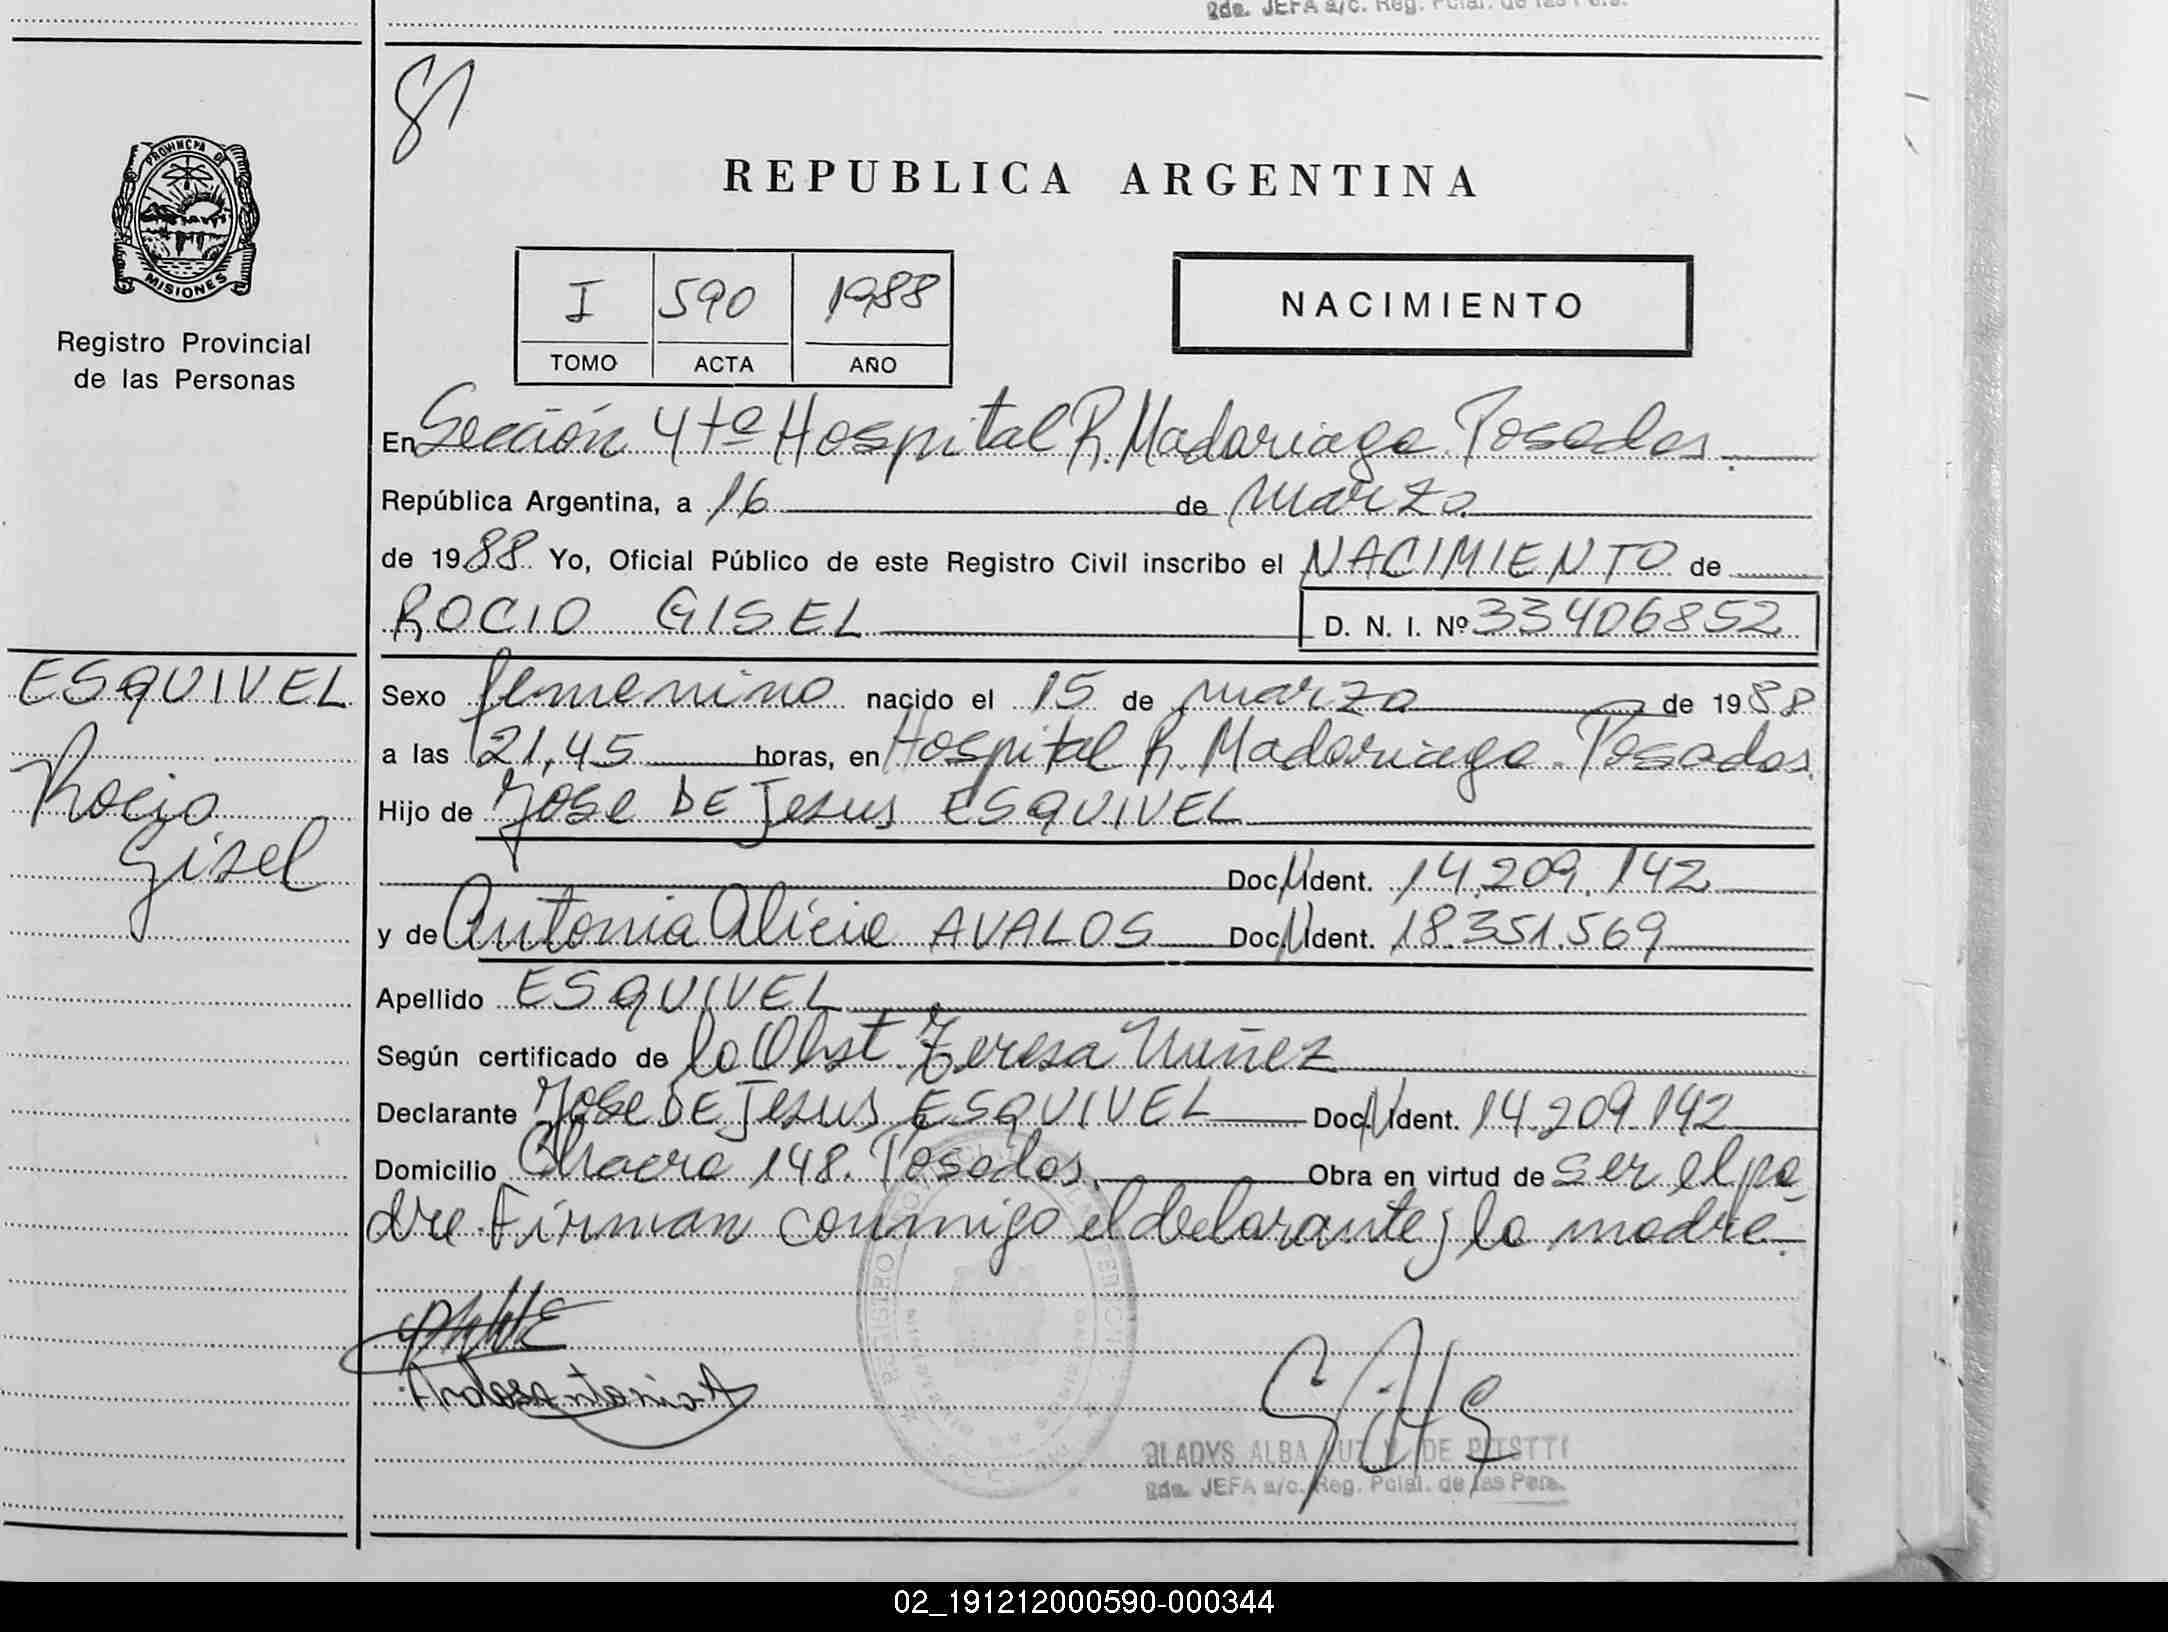 Gda. JEFA a/c. Reg. Pcial. de las Pers.
81
PROVINCIA DE
MISIONES
Registro Provincial
de las Personas
REPUBLICA ARGENTINA
I 590 1988
TOMO ACTA AÑO
NACIMIENTO
En Sección 4ta Hospital R. Madariaga. Posadas.
República Argentina, a 16 de marzo
de 1988 Yo, Oficial Público de este Registro Civil inscribo el NACIMIENTO de
ROCIO GISEL D. N. I. Nº 33406852
ESQUIVEL
Rocio
Gisel
Sexo femenino nacido el 15 de marzo de 1988
a las 21,45 horas, en Hospital R. Madariaga - Posadas.
Hijo de Jose DE Jesus ESQUIVEL
Doc. Ident. 14.209.142
y de Antonia Alicia AVALOS Doc. Ident. 18.351.569
Apellido ESQUIVEL
Según certificado de la Obst. Teresa Nuñez
Declarante Jose DE Jesus ESQUIVEL Doc. Ident. 14.209.142
Domicilio Chacra 148. Posadas. Obra en virtud de ser el pa-
dre. Firman conmigo el declarante y la madre.
GLADYS ALBA DE
Gda. JEFA a/c. Reg. Pcial. de las Pers.
02_191212000590-000344